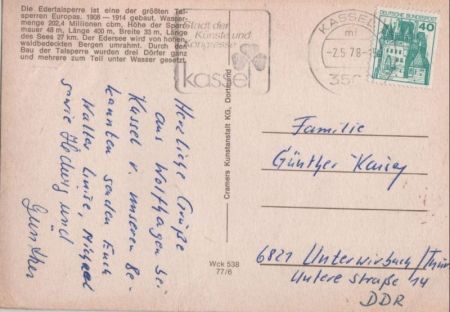 Die Edertalsperre ist eine der größten Tal-
sperren Europas. 1908 – 1914 gebaut. Wasser-
menge 202,4 Millionen cbm, Höhe der Sperr-
mauer 48 m, Länge 400 m, Breite 33 m, Länge
des Sees 27 km. Der Edersee wird von hohen,
waldbedeckten Bergen umrahmt. Durch den
Bau der Talsperre wurden drei Dörfer ganz
und mehrere zum Teil unter Wasser gesetzt.
Stadt der
Künste und
Kongresse
kassel
KASSEL
mf
-2.5.78-1
350
DEUTSCHE BUNDESPOST
40
Herzliche Grüße
aus Wolfhagen bei
Kassel v. unseren Be-
kannten senden Euch
Walter, Luise, Michael
sowie Hedwig und
Günther
Cramers Kunstanstalt KG, Dortmund
Wck 538
77/6
Familie
Günther
6821 Unterwirbach/Thür
Untere Straße 14
DDR